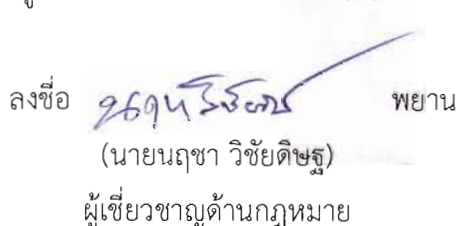 ลงชื่อ พยาน
(นายนฤชา วิชัยดิษฐ)
ผู้เชี่ยวชาญด้านกฎหมาย